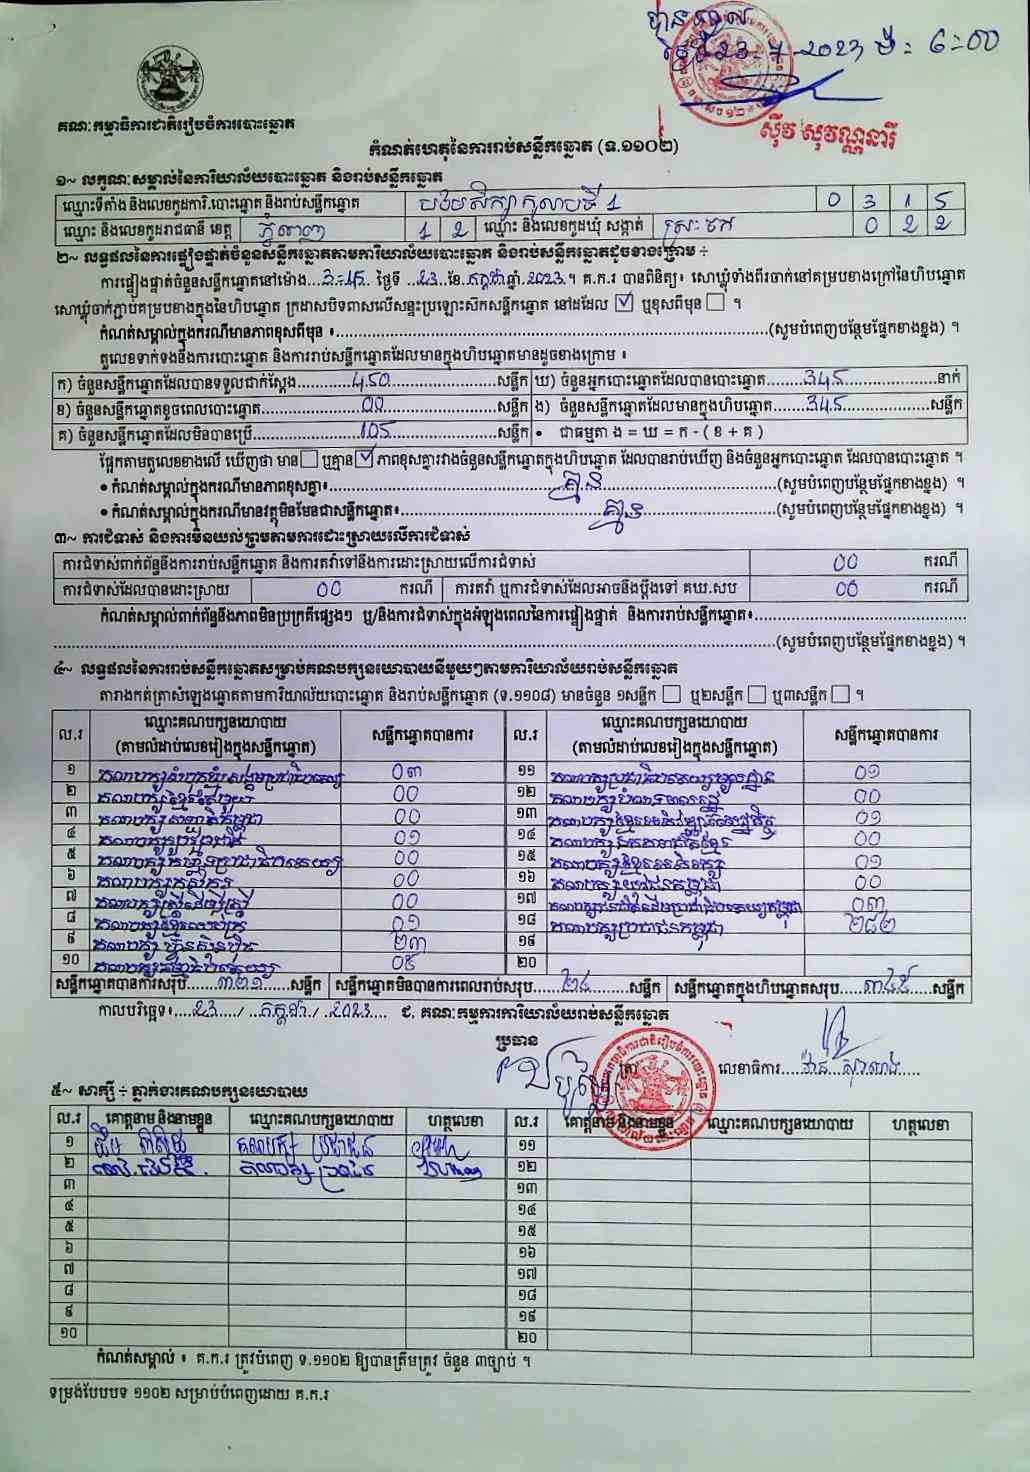 បានទទួល
ថ្ងៃទី 23-7-2023 ម៉ : 6:00
ស៊ីវ សុវណ្ណនារី
គណៈកម្មាធិការជាតិរៀបចំការបោះឆ្នោត
កំណត់ហេតុនៃការរាប់សន្លឹកឆ្នោត (ទ.១១០២)
១~ លក្ខណៈសម្គាល់នៃការិយាល័យបោះឆ្នោត និងរាប់សន្លឹកឆ្នោត
ឈ្មោះទីតាំង និងលេខកូដការិ.បោះឆ្នោត និងរាប់សន្លឹកឆ្នោត 0 3 1 5
ឈ្មោះ និងលេខកូដរាជធានី ខេត្ត ភ្នំពេញ 1 2 ឈ្មោះ និងលេខកូដឃុំ សង្កាត់ ស្រះចក 0 2 2
២~ លទ្ធផលនៃការផ្ទៀងផ្ទាត់ចំនួនសន្លឹកឆ្នោតតាមការិយាល័យបោះឆ្នោត និងរាប់សន្លឹកឆ្នោតដូចខាងក្រោម ÷
ការផ្ទៀងផ្ទាត់ចំនួនសន្លឹកឆ្នោតនៅម៉ោង...3:45.. ថ្ងៃទី ..23..ខែ.កក្កដា.ឆ្នាំ.2023.។ គ.ក.រ បានពិនិត្យ៖ សោឃ្លុំទាំងពីរចាក់នៅគម្របខាងក្រៅនៃហិបឆ្នោត
សោឃ្លុំចាក់ភ្ជាប់គម្របខាងក្នុងនៃហិបឆ្នោត ក្រដាសបិទពាសលើសន្ទះប្រឡោះស៊កសន្លឹកឆ្នោត នៅដដែល ☑ ឬខុសពីមុន ☐ ។
កំណត់សម្គាល់ក្នុងករណីមានភាពខុសពីមុន ៖......(សូមបំពេញបន្ថែមផ្នែកខាងខ្នង) ។
តួលេខទាក់ទងនឹងការបោះឆ្នោត និងការរាប់សន្លឹកឆ្នោតដែលមានក្នុងហិបឆ្នោតមានដូចខាងក្រោម ៖
ក) ចំនួនសន្លឹកឆ្នោតដែលបានទទួលជាក់ស្តែង......450......សន្លឹក ឃ) ចំនួនអ្នកបោះឆ្នោតដែលបានបោះឆ្នោត......345......នាក់
ខ) ចំនួនសន្លឹកឆ្នោតខូចពេលបោះឆ្នោត......00......សន្លឹក ង) ចំនួនសន្លឹកឆ្នោតដែលមានក្នុងហិបឆ្នោត......345......សន្លឹក
គ) ចំនួនសន្លឹកឆ្នោតដែលមិនបានប្រើ......105......សន្លឹក • ជាធម្មតា ង = ឃ = ក - ( ខ + គ )
ផ្អែកតាមតួលេខខាងលើ ឃើញថា មាន ☐ ឬគ្មាន ☑ ភាពខុសគ្នារវាងចំនួនសន្លឹកឆ្នោតក្នុងហិបឆ្នោត ដែលបានរាប់ឃើញ និងចំនួនអ្នកបោះឆ្នោត ដែលបានបោះឆ្នោត ។
• កំណត់សម្គាល់ក្នុងករណីមានភាពខុសគ្នា៖......គ្មាន......(សូមបំពេញបន្ថែមផ្នែកខាងខ្នង) ។
• កំណត់សម្គាល់ក្នុងករណីមានវត្ថុមិនមែនជាសន្លឹកឆ្នោត៖......គ្មាន......(សូមបំពេញបន្ថែមផ្នែកខាងខ្នង) ។
៣~ ការជំទាស់ និងការមិនយល់ព្រមតាមការដោះស្រាយលើការជំទាស់
ការជំទាស់ពាក់ព័ន្ធនឹងការរាប់សន្លឹកឆ្នោត និងការតវ៉ាទៅនឹងការដោះស្រាយលើការជំទាស់ 00 ករណី
ការជំទាស់ដែលបានដោះស្រាយ 00 ករណី ការតវ៉ា ឬការជំទាស់ដែលអាចនឹងប្តឹងទៅ គឃ.សប 00 ករណី
កំណត់សម្គាល់ពាក់ព័ន្ធនឹងភាពមិនប្រក្រតីផ្សេងៗ ឬ/និងការជំទាស់ក្នុងអំឡុងពេលនៃការផ្ទៀងផ្ទាត់ និងការរាប់សន្លឹកឆ្នោត៖......
......(សូមបំពេញបន្ថែមផ្នែកខាងខ្នង) ។
៤~ លទ្ធផលនៃការរាប់សន្លឹកឆ្នោតសម្រាប់គណបក្សនយោបាយនីមួយៗតាមការិយាល័យរាប់សន្លឹកឆ្នោត
តារាងកត់ត្រាសំឡេងឆ្នោតតាមការិយាល័យបោះឆ្នោត និងរាប់សន្លឹកឆ្នោត (ទ.១១០៨) មានចំនួន ១សន្លឹក ☐ ឬ២សន្លឹក ☐ ឬ៣សន្លឹក ☐ ។
ល.រ ឈ្មោះគណបក្សនយោបាយ (តាមលំដាប់លេខរៀងក្នុងសន្លឹកឆ្នោត) សន្លឹកឆ្នោតបានការ ល.រ ឈ្មោះគណបក្សនយោបាយ (តាមលំដាប់លេខរៀងក្នុងសន្លឹកឆ្នោត) សន្លឹកឆ្នោតបានការ
១ គណបក្សសំបុកឃ្មុំសង្គមប្រជាធិបតេយ្យ ០៣ ១១ ០១
២ គណបក្សខ្មែររួបរួម ០០ ១២ ០០
៣ គណបក្សសញ្ជាតិកម្ពុជា ០០ ១៣ ០១
៤ ០១ ១៤ ០០
៥ ០០ ១៥ ០១
៦ គណបក្សកសិករ ០០ ១៦ គណបក្សយុវជនកម្ពុជា ០០
៧ គណបក្សស្ត្រីដើម្បីស្ត្រី ០០ ១៧ ០៣
៨ ០១ ១៨ គណបក្សប្រជាជនកម្ពុជា ២៨២
៩ គណបក្សហ្វ៊ុនស៊ិនប៉ិច ២៣ ១៩
១០ គណបក្សធម្មាធិបតេយ្យ ០៥ ២០
សន្លឹកឆ្នោតបានការសរុប......៣២១......សន្លឹក សន្លឹកឆ្នោតមិនបានការពេលរាប់សរុប......២៤......សន្លឹក សន្លឹកឆ្នោតក្នុងហិបឆ្នោតសរុប......៣៤៥......សន្លឹក
កាលបរិច្ឆេទ៖....23..../ ..កក្កដា../ ..2023.... ជ. គណៈកម្មការការិយាល័យរាប់សន្លឹកឆ្នោត
ប្រធាន
ត្រា
លេខាធិការ
៥~ សាក្សី ÷ ភ្នាក់ងារគណបក្សនយោបាយ
ល.រ គោត្តនាម និងនាមខ្លួន ឈ្មោះគណបក្សនយោបាយ ហត្ថលេខា ល.រ គោត្តនាម និងនាមខ្លួន ឈ្មោះគណបក្សនយោបាយ ហត្ថលេខា
១ គណបក្ស ប្រជាជន ១១
២ គណបក្ស ប្រជាជន ១២
៣ ១៣
៤ ១៤
៥ ១៥
៦ ១៦
៧ ១៧
៨ ១៨
៩ ១៩
១០ ២០
កំណត់សម្គាល់ ៖ គ.ក.រ ត្រូវបំពេញ ទ.១១០២ ឱ្យបានត្រឹមត្រូវ ចំនួន ៣ច្បាប់ ។
ទម្រង់បែបបទ ១១០២ សម្រាប់បំពេញដោយ គ.ក.រ